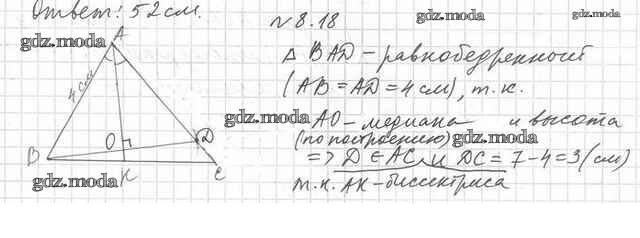 Ответ: 52 см.
N 8.18
gdz.moda
gdz.moda
gdz.moda
A
4 см
O
D
B
K
C
gdz.moda
Δ BAD – равнобедренный
(AB = AD = 4 см), т.к.
gdz.moda
AO – медиана и высота
(по построению)
gdz.moda
=> D ∈ AC, и DC = 7 – 4 = 3 (см)
т.к. AK – биссектриса